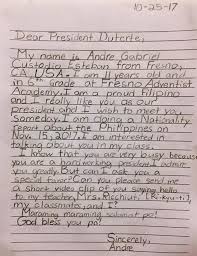 10-25-17
Dear President Duterte,
My name is Andre Gabriel
Custodio Esteban from Fresno,
CA, USA. I am 11 years old and
in 6th Grade at Fresno Adventist
Academy. I am a proud Filipino
and I really like you as our
president and I wish to meet you
Someday. I am doing a Nationality
report about the Philippines on
Nov. 15, 2017. I am interested in
talking about you in my class.
I know that you are very busy because
you are a hardworking president. I admire
you greatly. But can I ask you a
special favor? Can you please send me
a short video clip of you saying hello
to my teacher, Mrs. Ricchiuti (Ri-kyu-ti),
my classmates, and I?
Maraming maraming salamat po!
God bless you po!
Sincerely,
Andre